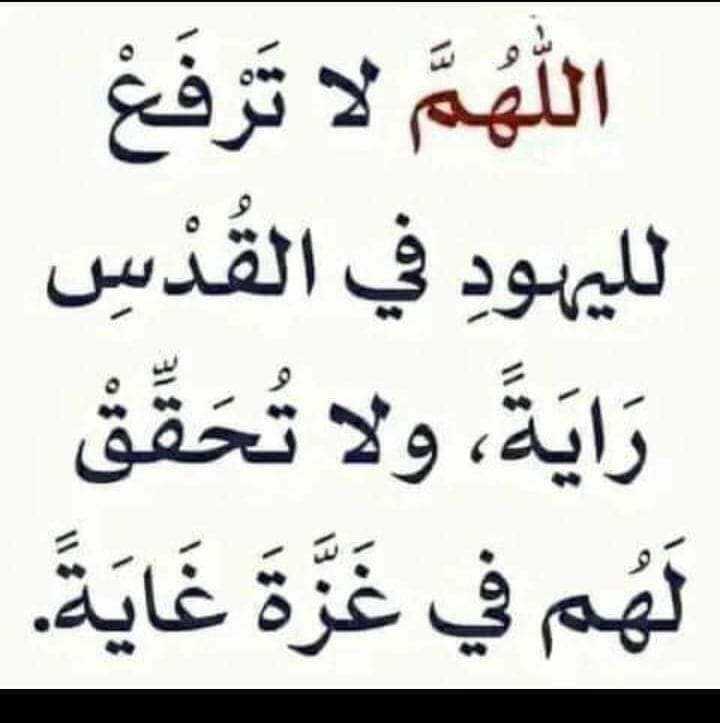 اللَّهُمَّ لا تَرْفَعْ
لليهودِ في القُدْسِ
رَايَةً، ولا تُحَقِّقْ
لَهُم في غَزَّةَ غَايَةً.